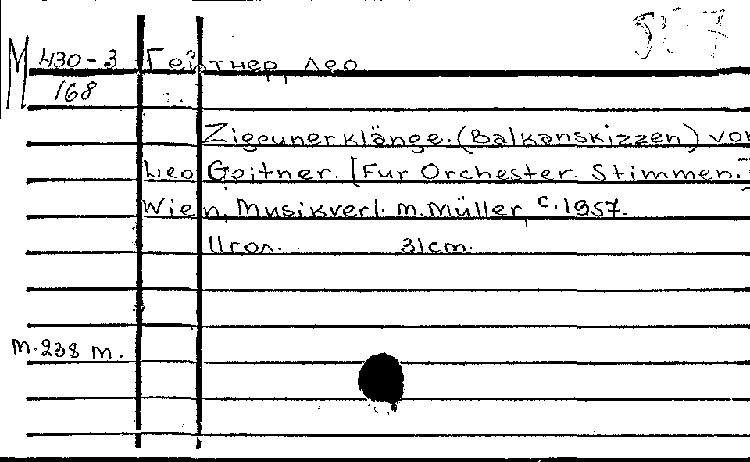 M 430-3 Гейтнер, Лео
168
Zigeunerklänge. (Balkanskizzen) von
Leo Geitner. [Fur Orchester. Stimmen.]
Wien, Musikverl. M. Müller, c. 1957.
31cm.
М.238 М.